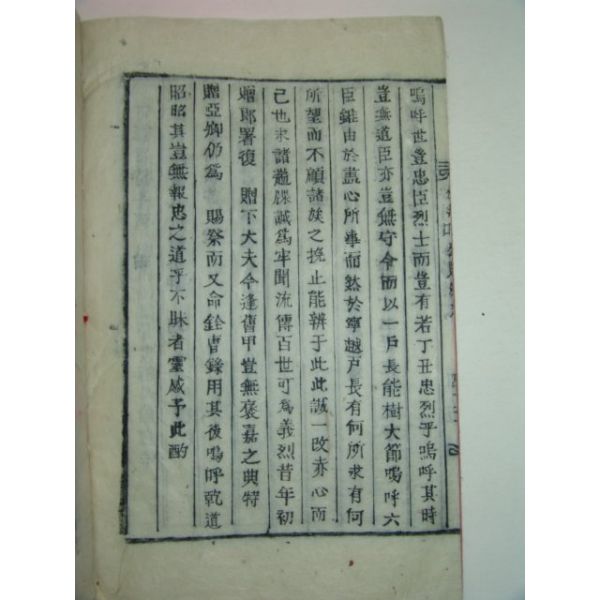 嗚呼世豈忠臣烈士而豈有若丁丑忠烈乎嗚呼其時
豈無道臣亦豈無守令而以一戶長能樹大節嗚呼六
臣雖由於盡心所事而然於寧越戶長有何所求有何
所望而不顧諸族之挽止能辨于此此誠一改亦心而
已也求諸簡牒誠爲牢聞流傳百世可爲義烈昔年初
贈郎署復 贈下大夫今逢舊甲豈無褒嘉之典特
贈亞卿仍爲 賜祭而又命銓曹錄用其後嗚呼孰道
昭昭其豈無報忠之道乎不昧者靈感予此酌